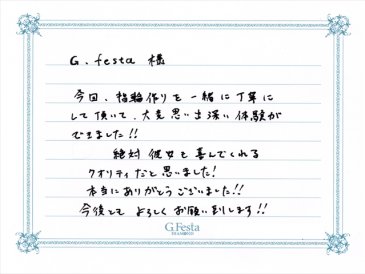 G.festa 様
今回、指輪作りを一緒に丁寧に
して頂いて、大変思い出深い体験が
できました!!
絶対 彼女も喜んでくれる
クオリティだと思いました!
本当にありがとうございました!!
今後とも よろしく お願い致します!!
G.Festa
DIAMOND